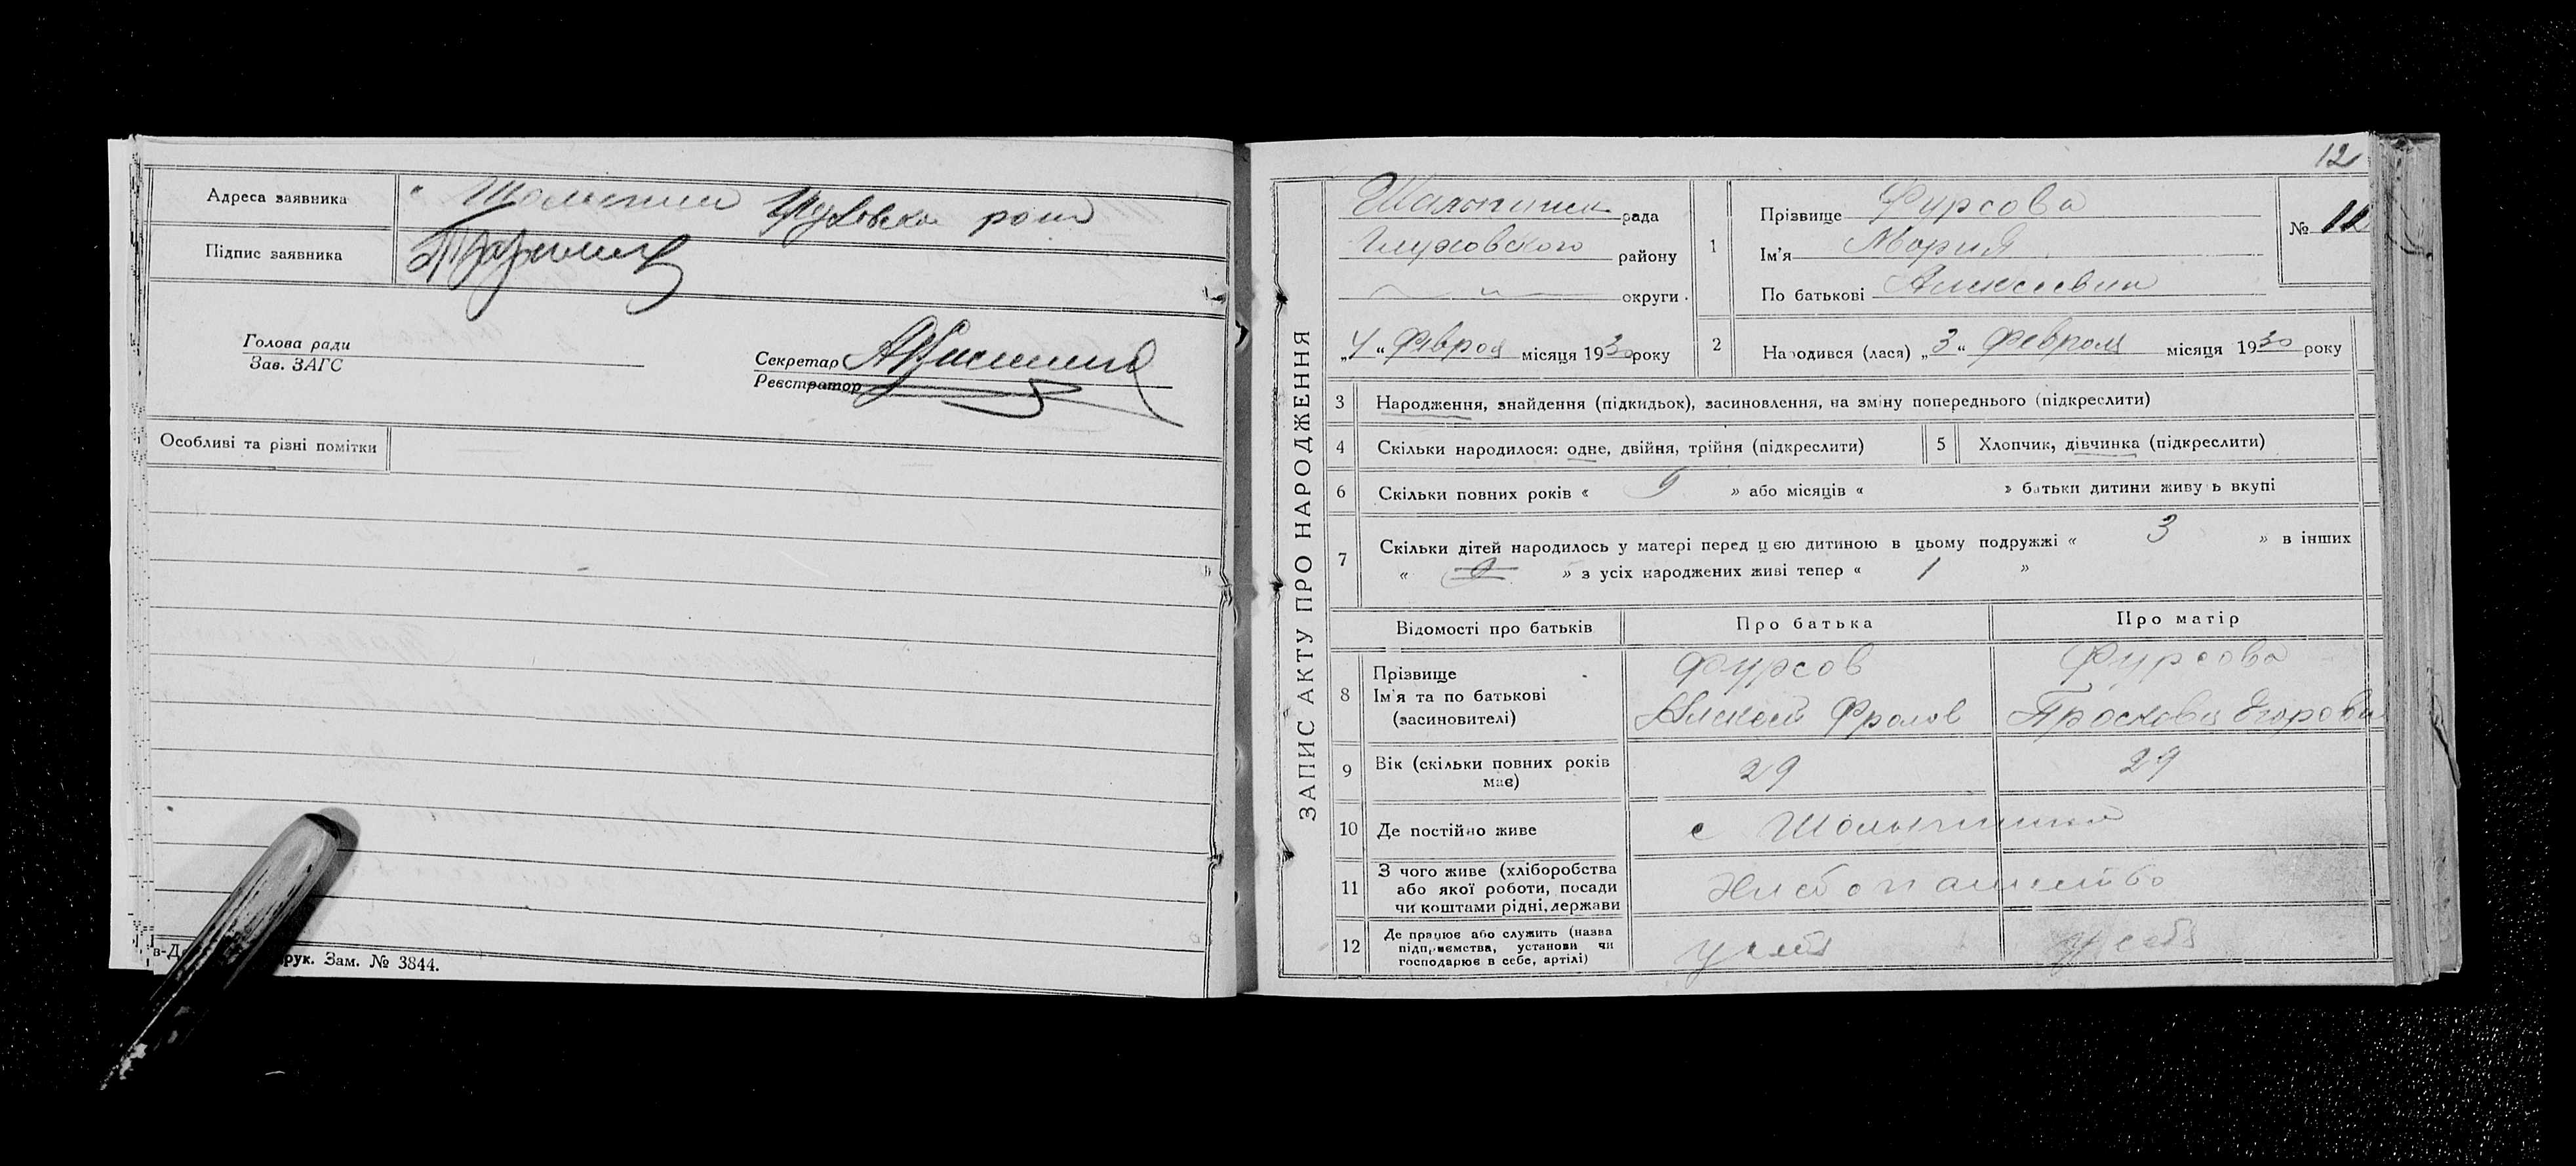 Адреса заявника
Підпис заявника
Голова ради
Зав. ЗАГС
Секретар
Реєстратор
Особливі та різні помітки
рук. Зам. № 3844.
12
ЗАПИС АКТУ ПРО НАРОДЖЕННЯ
рада
Глуховского району
округи
„4“ Феврол місяця 1930 року
1
Прізвище Фурсова
Ім'я Мария
По батькові Алексеевна
№ 11
2
Народився (лася) „3“ Февроля місяця 1930 року
3 Народження, знайдення (підкидьок), засиновлення, на зміну попереднього (підкреслити)
4 Скільки народилося: одне, двійня, трійня (підкреслити)
5 Хлопчик, дівчинка (підкреслити)
6 Скільки повних років « 9 » або місяців « » батьки дитини живуть вкупі
7 Скільки дітей народилось у матері перед цією дитиною в цьому подружжі « 3 » в інших
« » з усіх народжених живі тепер « 1 »
Відомості про батьків Про батька Про матір
8 Прізвище Фурсов Фурсова
Ім'я та по батькові Алексей Фролов Просковя Егорова
(засиновителі)
9 Вік (скільки повних років має) 29 29
10 Де постійно живе с
11 З чого живе (хліборобства
або якої роботи, посади
чи коштами рідні, держави
Хлебопашество
12 Де працює або служить (назва
підприємства, установи чи
господарює в себе, артілі)
у себя у себя